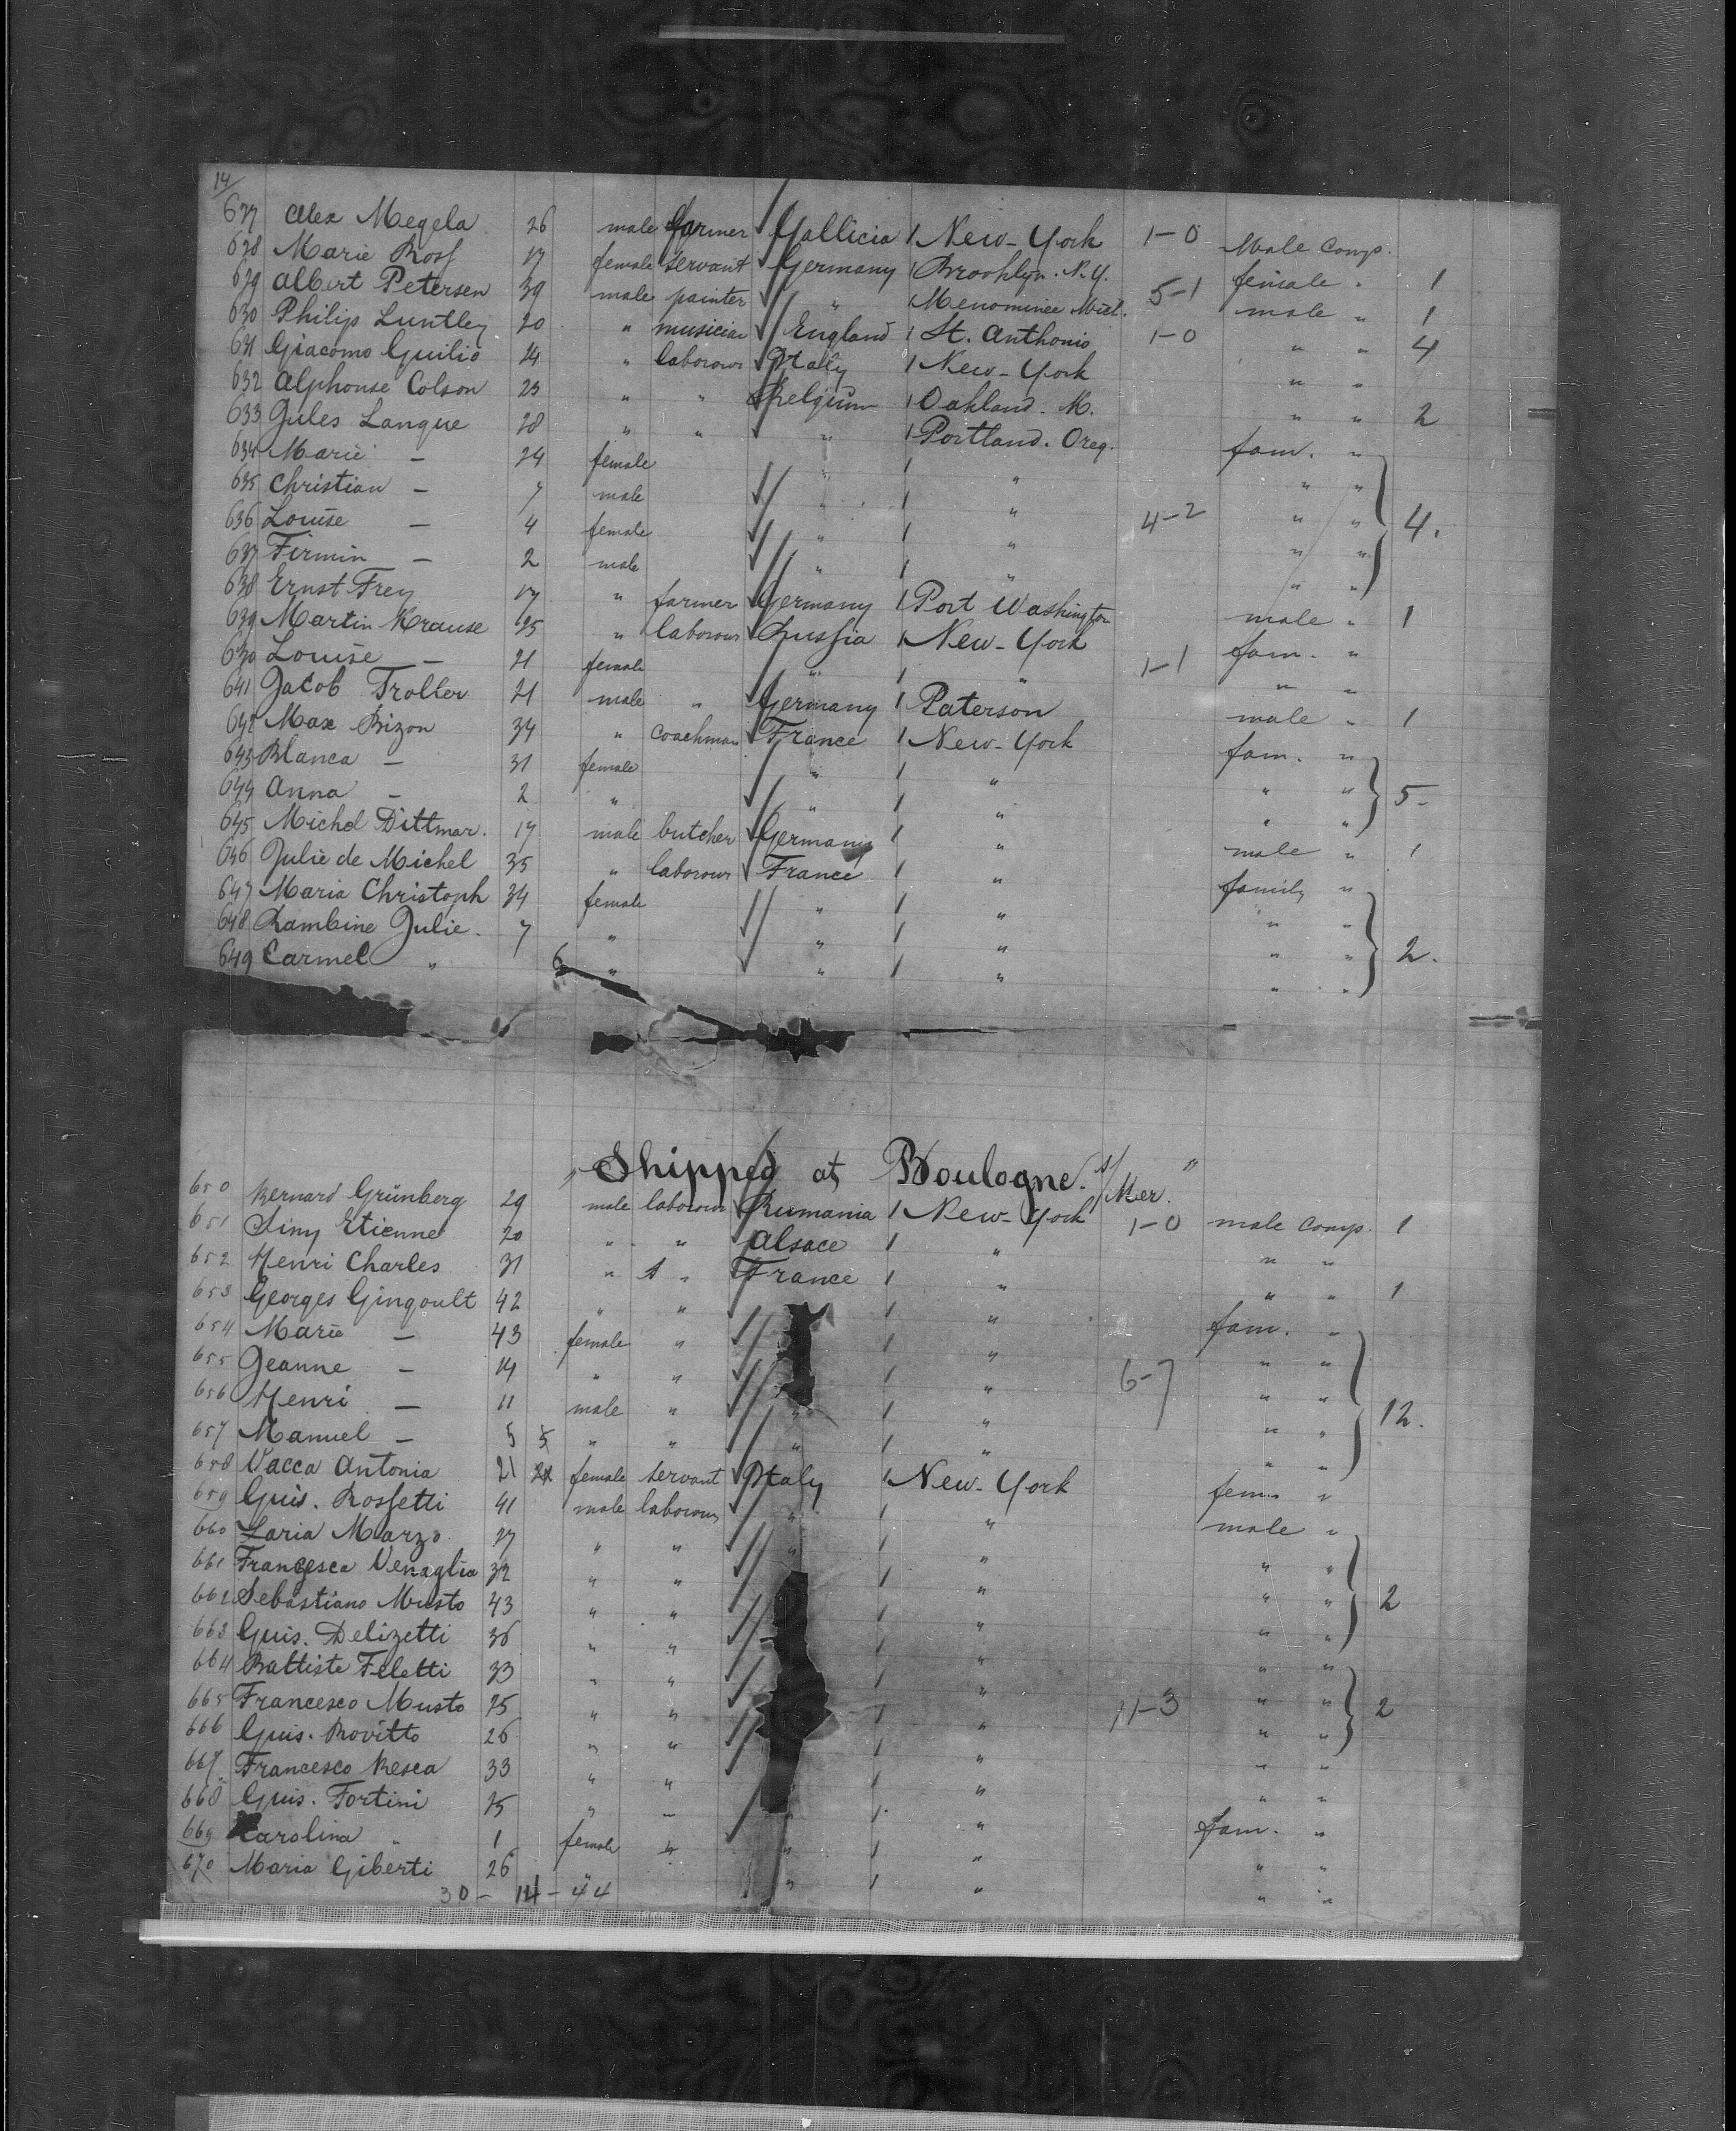 14/
627 Alex Megela 26 male farmer Gallicia 1 New-York 1-0 Male Comp.
628 Marie Ross 17 female servant Germany 1 Brooklyn. N.Y. female " 1
629 Albert Petersen 39 male painter " Menominee Mich. 5-1 male " 1
630 Philip Luntley 20 " musician England 1 St. Anthonio 1-0 " " 4
631 Giacomo Guilio 24 " laborour Italy 1 New-York " "
632 Alphonse Colson 23 " " Belgium 1 Oakland. M. " " 2
633 Jules Langue 28 " " " 1 Portland. Oreg. fam. "
634 Marie — 24 female " 1 " " "
635 Christian — 7 male " 1 " 4-2 " " 4.
636 Louise — 4 female " 1 " " "
637 Firmin — 2 male " 1 " " "
638 Ernst Frey 17 " farmer Germany 1 Port Washington male " 1
639 Martin Krause 25 " laborour Russia 1 New-York fam. "
630 Louise — 21 female " 1 " 1-1 " "
641 Jacob Troller 21 male " Germany 1 Paterson male " 1
642 Max Bizon 34 " coachman France 1 New-York fam. "
643 Blanca — 31 female " 1 " " " 5-
644 Anna — 2 " " 1 " " "
645 Michel Dittmar. 17 male butcher Germany 1 " male " 1
646 Julie de Michel 35 " laborour France 1 " family "
647 Maria Christoph 34 female " 1 " " "
648 Lambine Julie. 7 " " 1 " " " 2.
649 Carmel " 6 " " 1 " " "
" Shipped at Boulogne s/Mer. "
650 Bernard Grünberg 29 male laborour Rumania 1 New-York 1-0 male comp. 1
651 Siny Etienne 20 " " Alsace 1 " " "
652 Henri Charles 31 " " France 1 " " " 1
653 Georges Gingoult 42 " " 1 " fam. "
654 Marie — 43 female " 1 " " "
655 Jeanne — 14 " " 1 " 6-7 " "
656 Henri — 11 male " " 1 " " " 12.
657 Manuel — 5 5 " " " 1 " " "
658 Vacca Antonia 21 female servant Italy 1 New-York fem. "
659 Guis. Rossetti 41 male laborour " 1 " male "
660 Laria Marzo 27 " " " 1 " " "
661 Francesca Venaglia 32 " " 1 " " " 2
662 Sebastiano Musto 43 " " 1 " " "
663 Guis. Delizetti 36 " " 1 " " "
664 Battiste Feletti 33 " " 1 " " "
665 Francesco Musto 25 " " 1 " 11-3 " " 2
666 Guis. Rovitto 26 " " 1 " " "
667 Francesco Resca 33 " " 1 " " "
668 Guis. Fortini 25 " " 1 " fam. "
669 Karolina " 1 female " " 1 " " "
670 Maria Giberti 26 " " 1 " " "
30 - 14 - 44